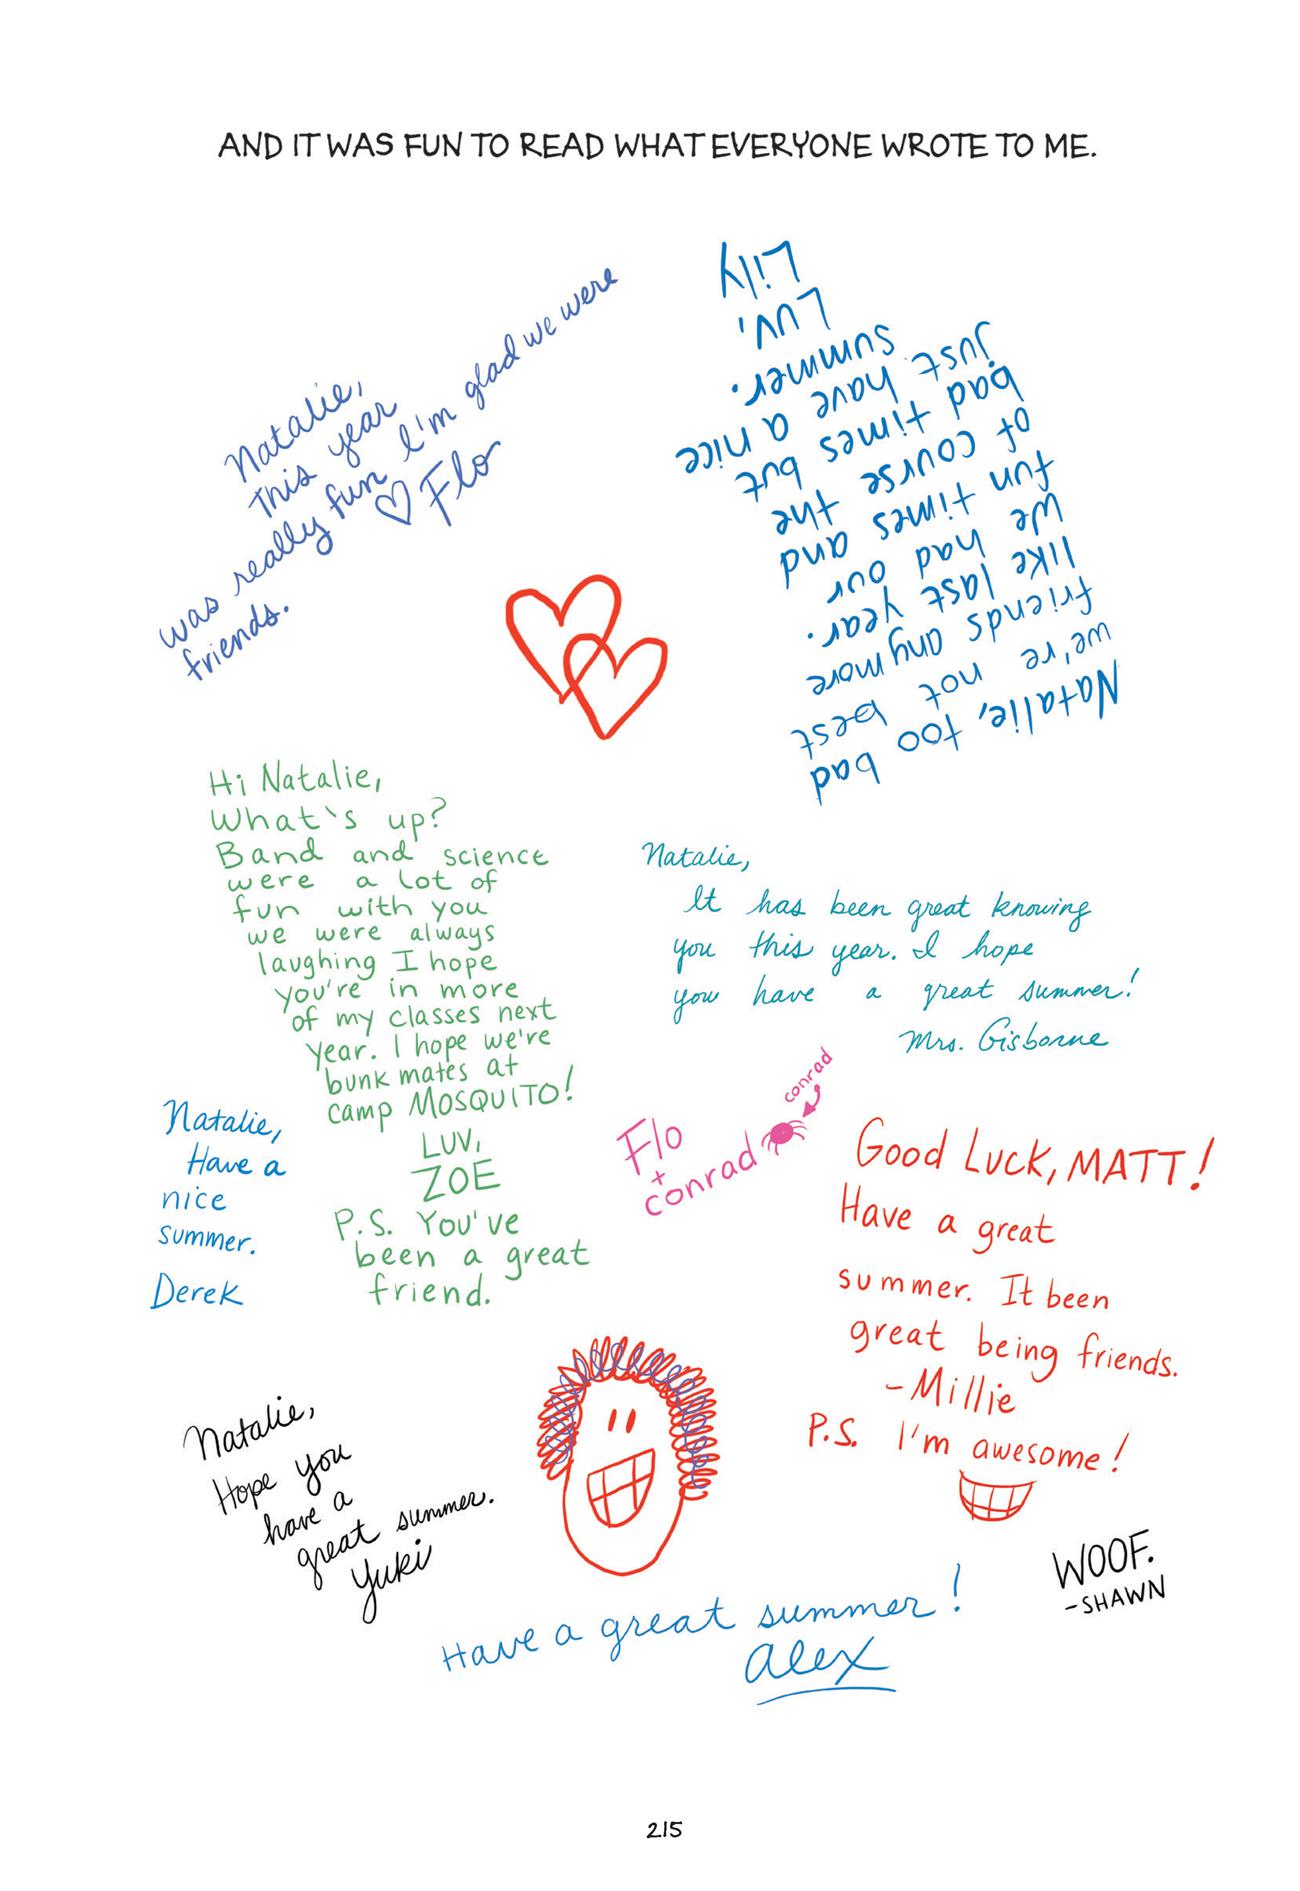 AND IT WAS FUN TO READ WHAT EVERYONE WROTE TO ME.
Natalie,
This year
was really fun I'm glad we were
friends.
♡ Flo
Natalie, too bad
we're not best
friends any more
like last year.
We had our
fun times and
of course the
bad times but
just have a nice
summer.
Luv,
Lily
Hi Natalie,
What's up?
Band and science
were a lot of
fun with you
we were always
laughing I hope
you're in more
of my classes next
year. I hope we're
bunk mates at
camp MOSQUITO!
LUV,
ZOE
P.S. You've
been a great
friend.
Natalie,
It has been great knowing
you this year. I hope
you have a great summer!
Mrs. Gisborne
conrad
Flo
+
conrad
Natalie,
Have a
nice
summer.
Derek
Good Luck, MATT!
Have a great
summer. It been
great being friends.
-Millie
P.S. I'm awesome!
Natalie,
Hope you
have a
great summer.
Yuki
WOOF.
-SHAWN
Have a great summer!
alex
215